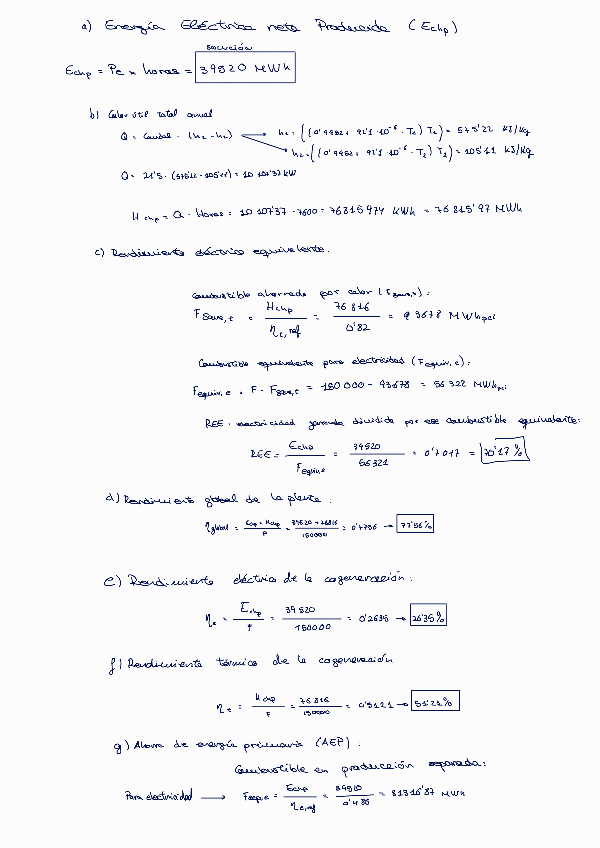 a) Energía Eléctrica neta Producida (Echp)
solución
Echp = Pe × horas = 39520 MWh
b) Calor útil total anual
Q = Caudal · (h2 - h1) → h2 = ((0'9482 + 91'1 · 10^-6 · T2) T2) = 575'22 KJ/Kg
h1 = ((0'9482 + 91'1 · 10^-6 · T1) T1) = 105'11 KJ/Kg
Q = 21'5 · (575'22 - 105'11) = 10 107'37 kW
Hchp = Q · Horas = 10 107'37 · 7600 = 76815974 KWh = 76 815'97 MWh
c) Rendimiento eléctrico equivalente.
Combustible ahorrado por calor (Fsave,t):
Fsave,t = Hchp / ηt,ref = 76 816 / 0'82 = 93678 MWhpci
Combustible equivalente para electricidad (Fequiv,e):
Fequiv,e = F - Fsave,t = 150 000 - 93678 = 56 322 MWhpci
REE = electricidad generada dividida por ese combustible equivalente:
REE = Echp / Fequiv,e = 39520 / 56321 = 0'7017 = 70'17%
d) Rendimiento global de la planta:
ηglobal = Echp + Hchp / F = 39520 + 76816 / 150000 = 0'7756 → 77'56%
e) Rendimiento eléctrico de la cogeneración:
ηe = Echp / F = 39520 / 150000 = 0'2635 → 26'35%
f) Rendimiento térmico de la cogeneración
ηt = Hchp / F = 76816 / 150000 = 0'5121 → 51'21%
g) Ahorro de energía primaria (AEP):
Combustible en producción separada:
Para electricidad → Fsep,e = Echp / ηe,ref = 39520 / 0'486 = 81316'87 MWh